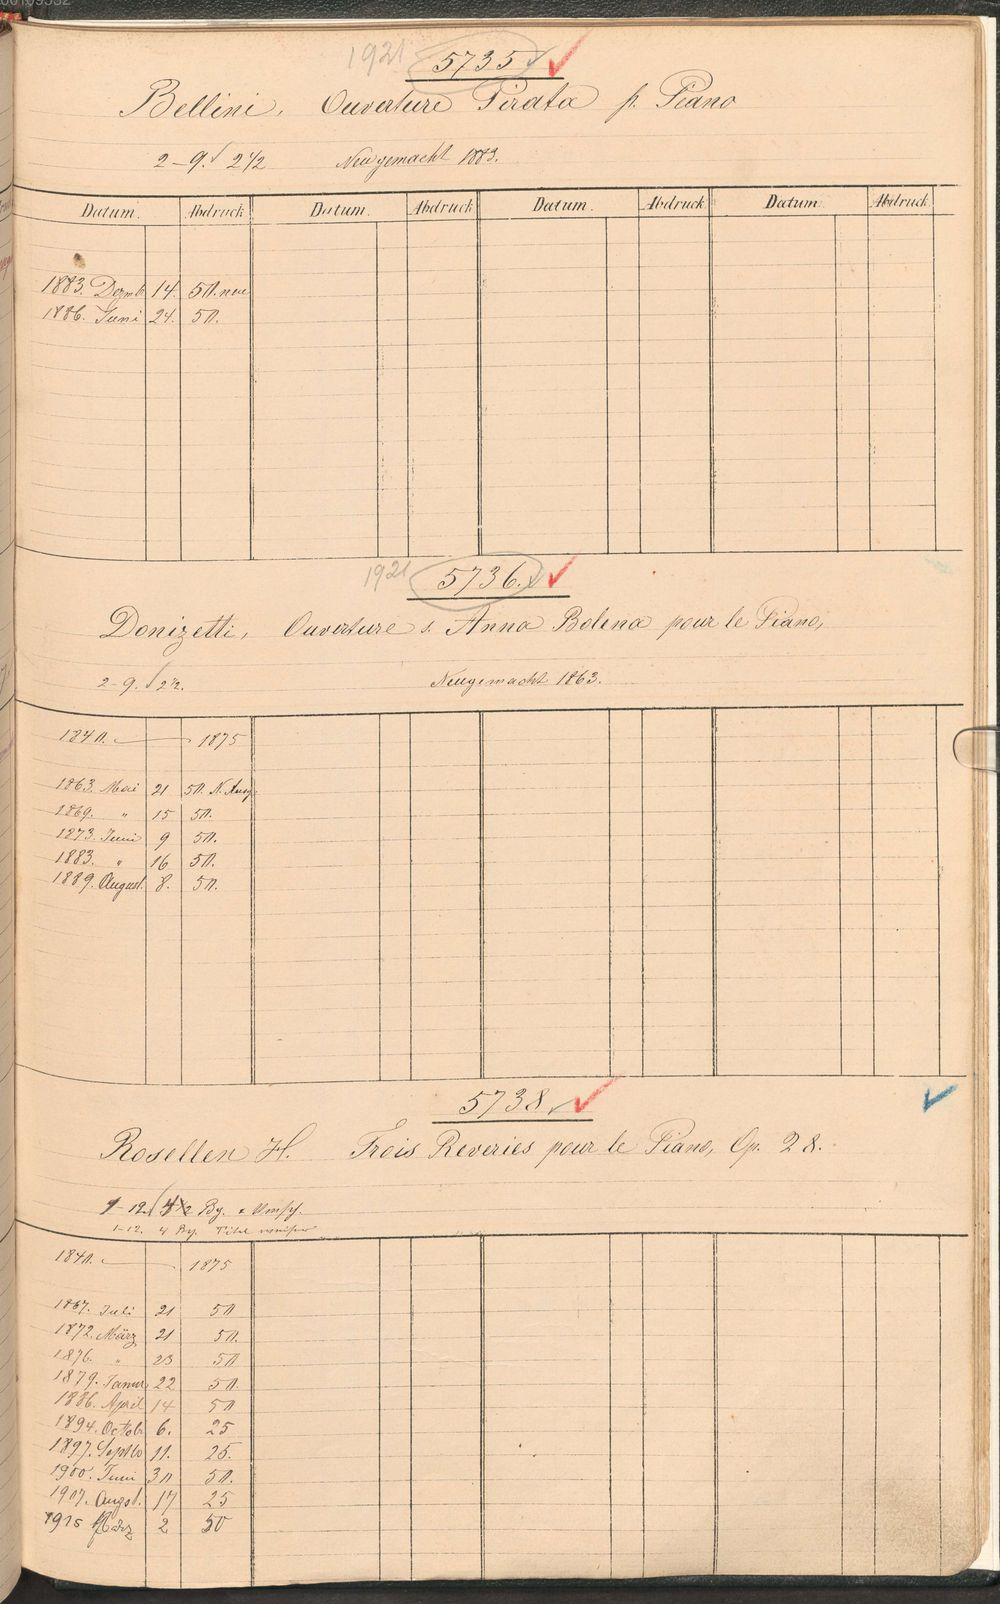 1921 5735
Bellini, Ouverture Pirata f. Piano
2-9. 2 1/2 Neugemacht 1883.
Datum. Abdruck Datum. Abdruck Datum. Abdruck Datum Abdruck
1883. Dezmb 14. 50. neue
1886. Juni 24. 50.
1921 5736.
Donizetti, Ouverture s. Anna Bolena pour le Piano,
2-9. 2 1/2. Neugemacht 1863.
1840. — 1875
1863. Mai 21 50. N. Ausg.
1869. " 15 50.
1873. Juni 9 50.
1883. " 16 50.
1889. August. 8. 50.
5738
Rosellen H. Trois Reveries pour le Piano, Op. 28.
1-12. 4 1/2 Bg. + Umsch.
1-12. 4 Bg. Titel
1840. — 1875
1867. Juli 21 50
1872. März 21 50.
1876. " 23 50
1879. Januar 22 50.
1886. April 14 50
1894. Octob 6. 25
1897. Septbr 11. 25.
1900. Juni 30 50.
1907. Augst. 17 25
1915 März 2 50